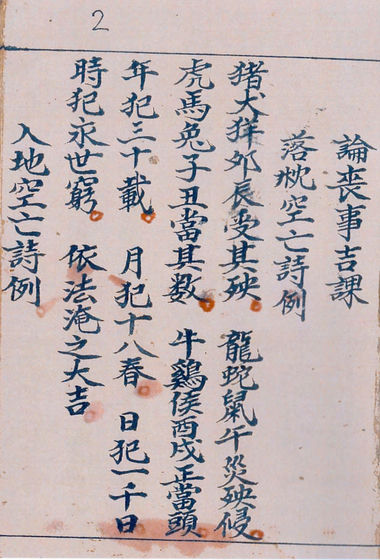 2
論喪事吉課
落枕空亡詩例
猪犬羊夘辰受其殃 龍蛇鼠午災殃侵
虎馬兔子丑當其数 牛鷄侯酉戌正當頭
年犯三十載 月犯十八春 日犯一千日
時犯永世窮 依法淹之大吉
入地空亡詩例